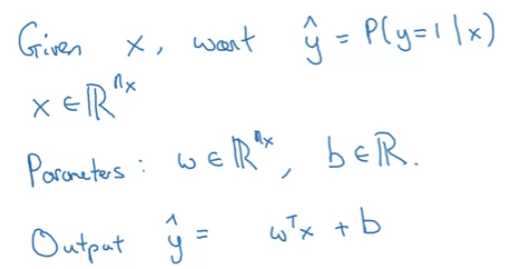 Given x, want ŷ = P(y=1|x)
x ∈ ℝⁿˣ
Parameters: w ∈ ℝⁿˣ, b ∈ ℝ.
Output ŷ = wᵀx + b